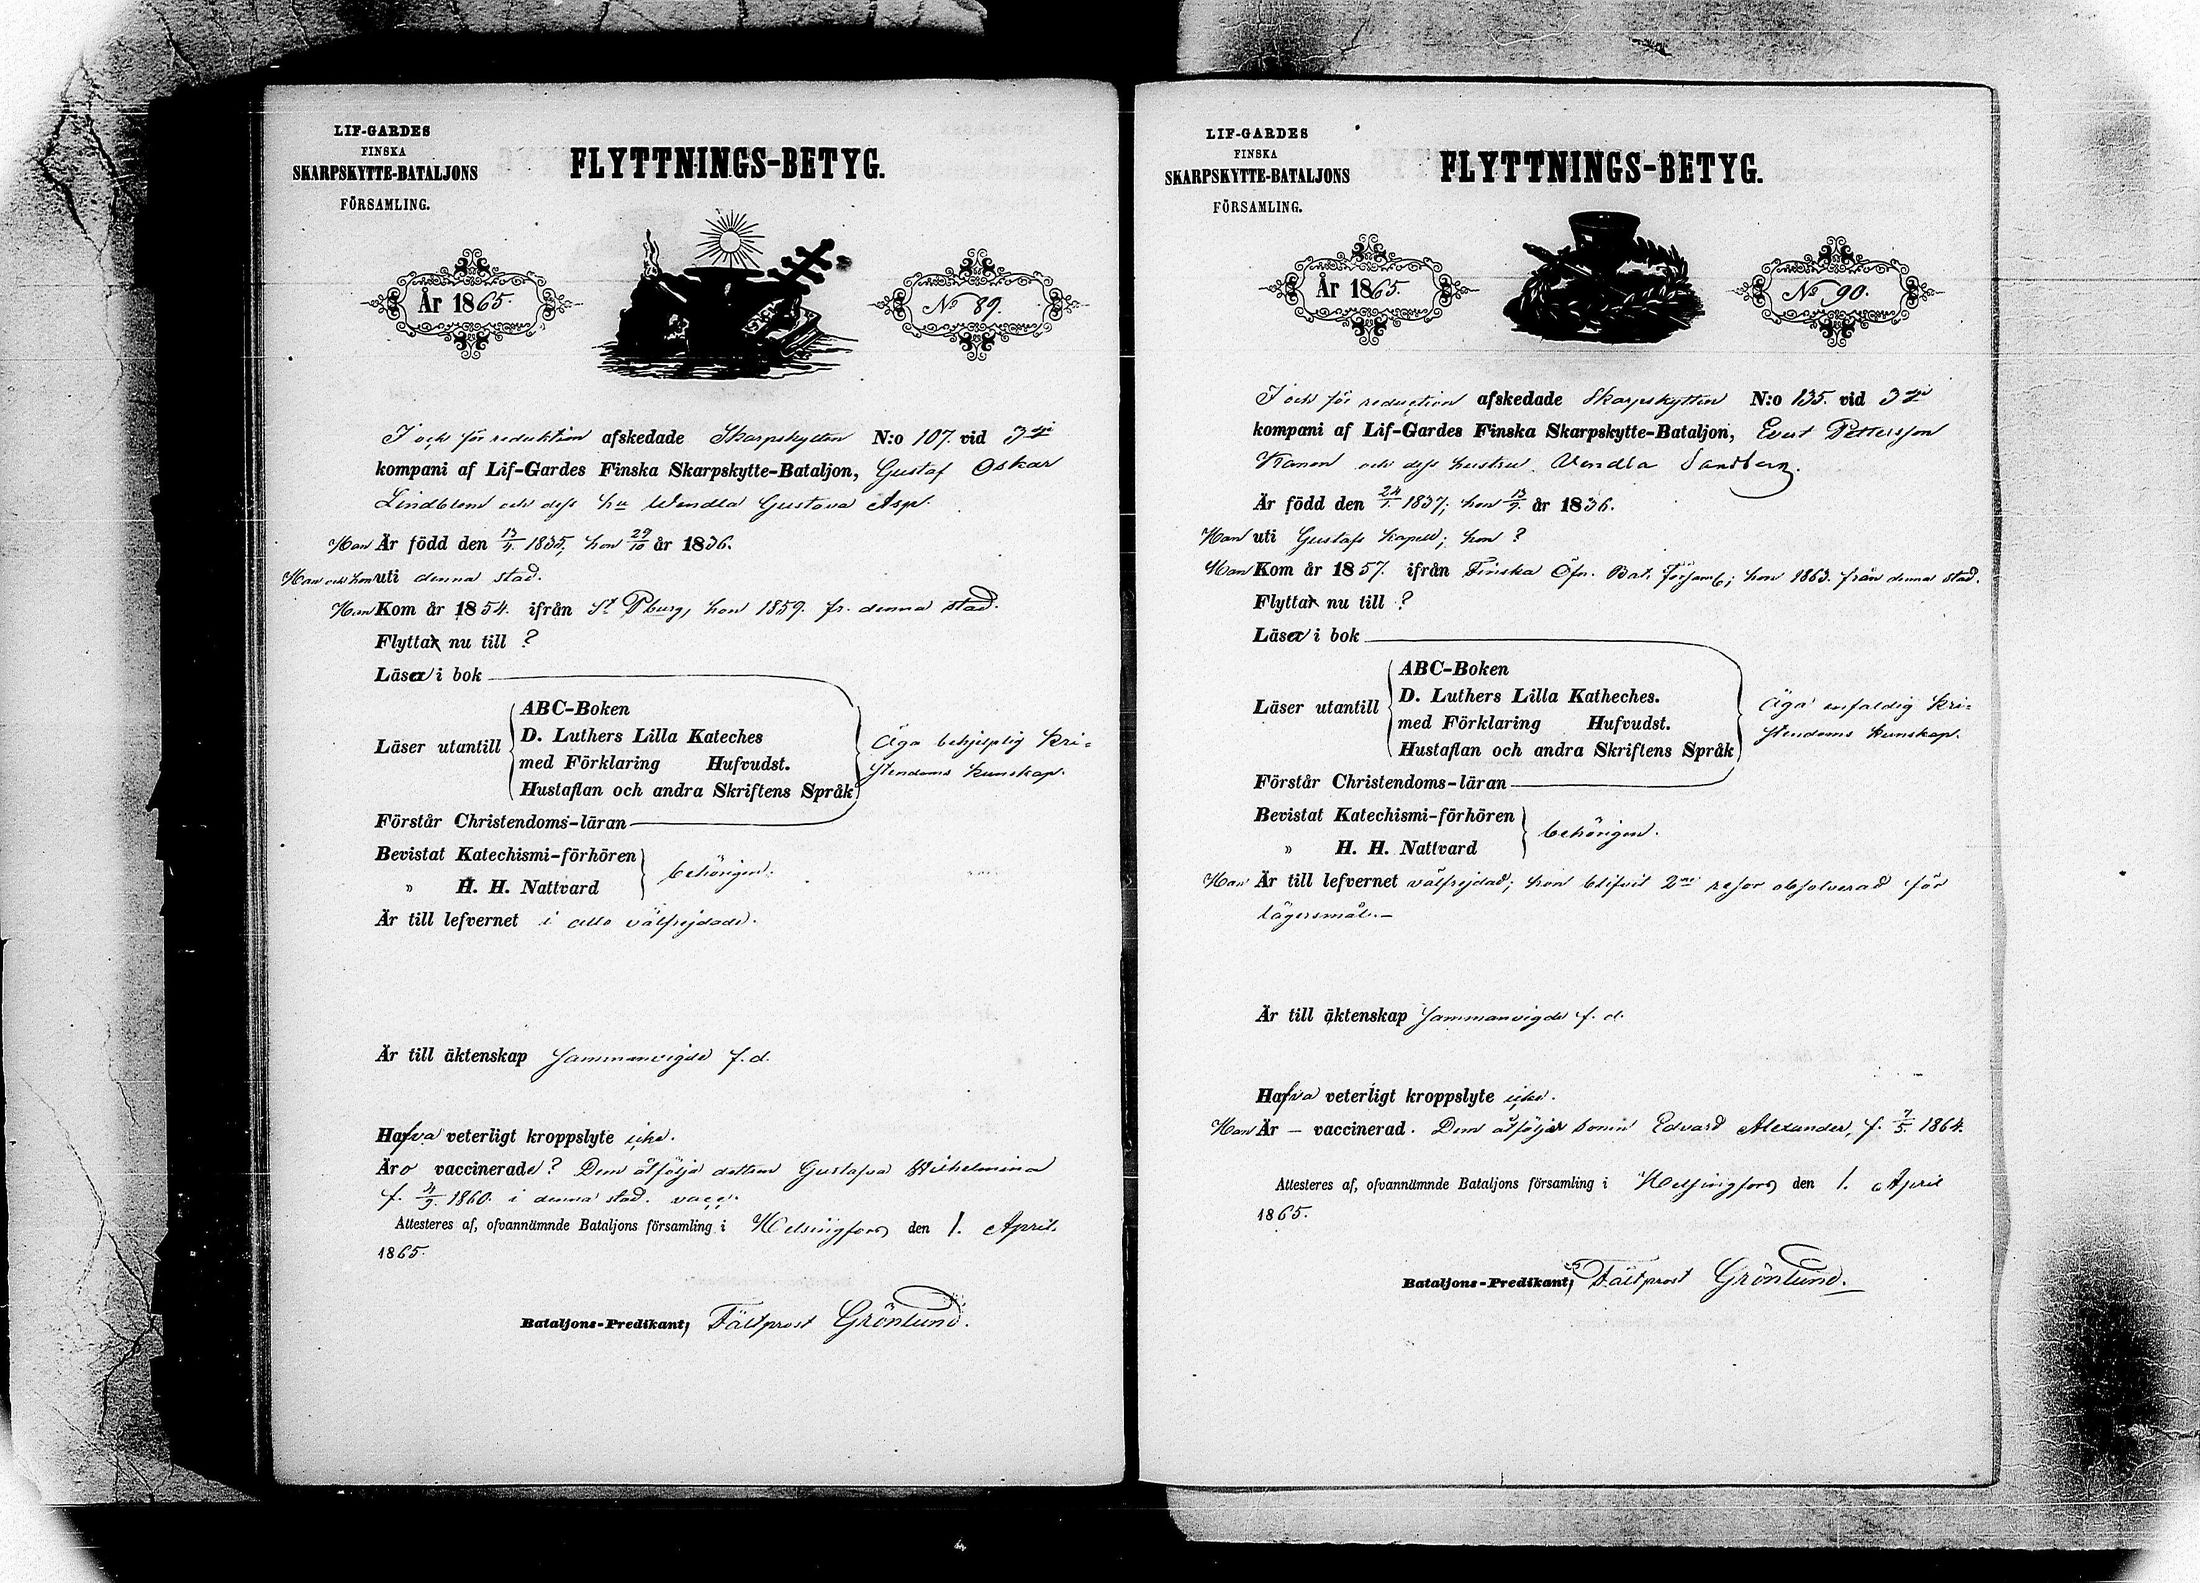 LIF-GARDES
FINSKA
SKARPSKYTTE-BATALJONS
FÖRSAMLING.
FLYTTNINGS-BETYG.
År 1865.
No 89.
I och för reduktion afskedade Skarpskytten N:o 107. vid 3dje
kompani af Lif-Gardes Finska Skarpskytte-Bataljon, Gustaf Oskar
Lindblom och dess hu Wendla Gustava Asp.
Han Är född den 13/4 1835, hon 29/10 år 1836.
Han och hon uti denna stad.
Han Kom år 1854. ifrån St Pburg, hon 1859. fr. denna stad.
Flyttar nu till ?
Läsa i bok
Läser utantill
ABC-Boken
D. Luthers Lilla Kateches
med Förklaring Hufvudst.
Hustaflan och andra Skriftens Språk
Äga behjelplig kri-
stendoms kunskap.
Förstår Christendoms-läran
Bevistat Katechismi-förhören
" H. H. Nattvard
behörigen.
Är till lefvernet i allo välfrejdade.
Är till äktenskap sammanvigde f. d.
Hafva veterligt kroppslyte icke.
Äro vaccinerade? Dem åtfölja dottern Gustafva Wilhelmina
f. 1860. i denna stad. vacc.
Attesteres af, ofvannämnde Bataljons församling i Helsingfors den 1. April.
1865.
Bataljons-Predikant, Fältprost Grönlund.
LIF-GARDES
FINSKA
SKARPSKYTTE-BATALJONS
FÖRSAMLING.
FLYTTNINGS-BETYG.
År 1865.
No 90.
I och för reduction afskedade Skarpskytten N:o 135. vid 3dje
kompani af Lif-Gardes Finska Skarpskytte-Bataljon, Evert Pettersson
Kanon och dess hustru Vendla Sandberg.
Är född den 24/1. 1837; hon 13/9. år 1836.
Han uti Gustafs kapell; hon ?
Han Kom år 1857. ifrån Finska Öfn. Bat. Församl; hon 1863. från denna stad.
Flyttar nu till ?
Läsa i bok
Läser utantill
ABC-Boken
D. Luthers Lilla Katheches.
med Förklaring Hufvudst.
Hustaflan och andra Skriftens Språk
Äga enfaldig kri-
stendoms kunskap.
Förstår Christendoms-läran
Bevistat Katechismi-förhören
" H. H. Nattvard
behörigen.
Han Är till lefvernet välfrejdad; hon blifvit 2ne resor absolverad för
lägersmål.
Är till äktenskap sammanvigde f. d.
Hafva veterligt kroppslyte icke.
Han Är – vaccinerad. Dem åtföljer sonen Edvard Alexander, f. 7/5. 1864.
Attesteres af, ofvannämnde Bataljons församling i Helsingfors den 1. April
1865.
Bataljons-Predikant, Fältprost Grönlund.